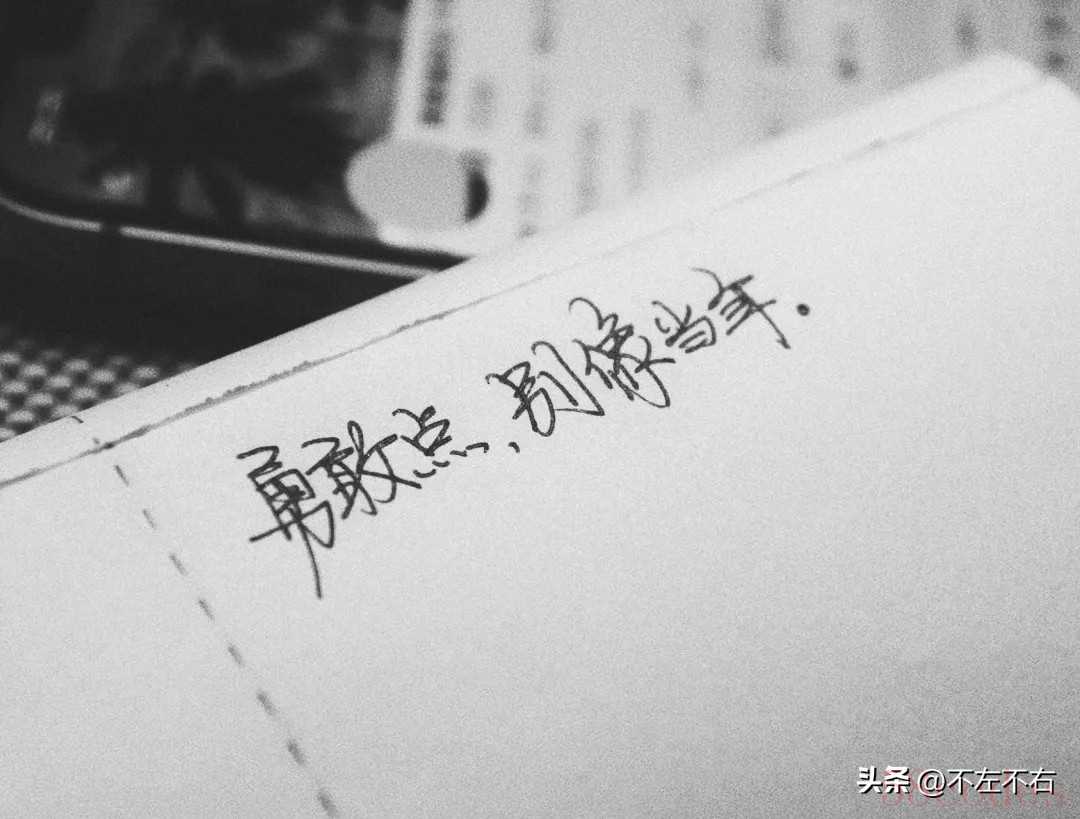 勇敢点、别像当年.
头条 @不左不右